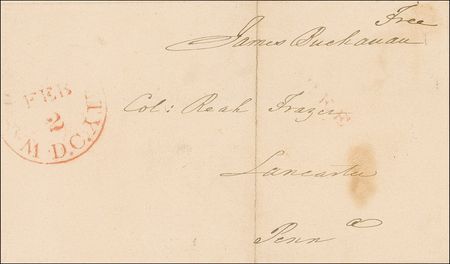 Free
James Buchanan
FEB
2
D.C.
Col: Reah Frazer
Lancaster
Penn a